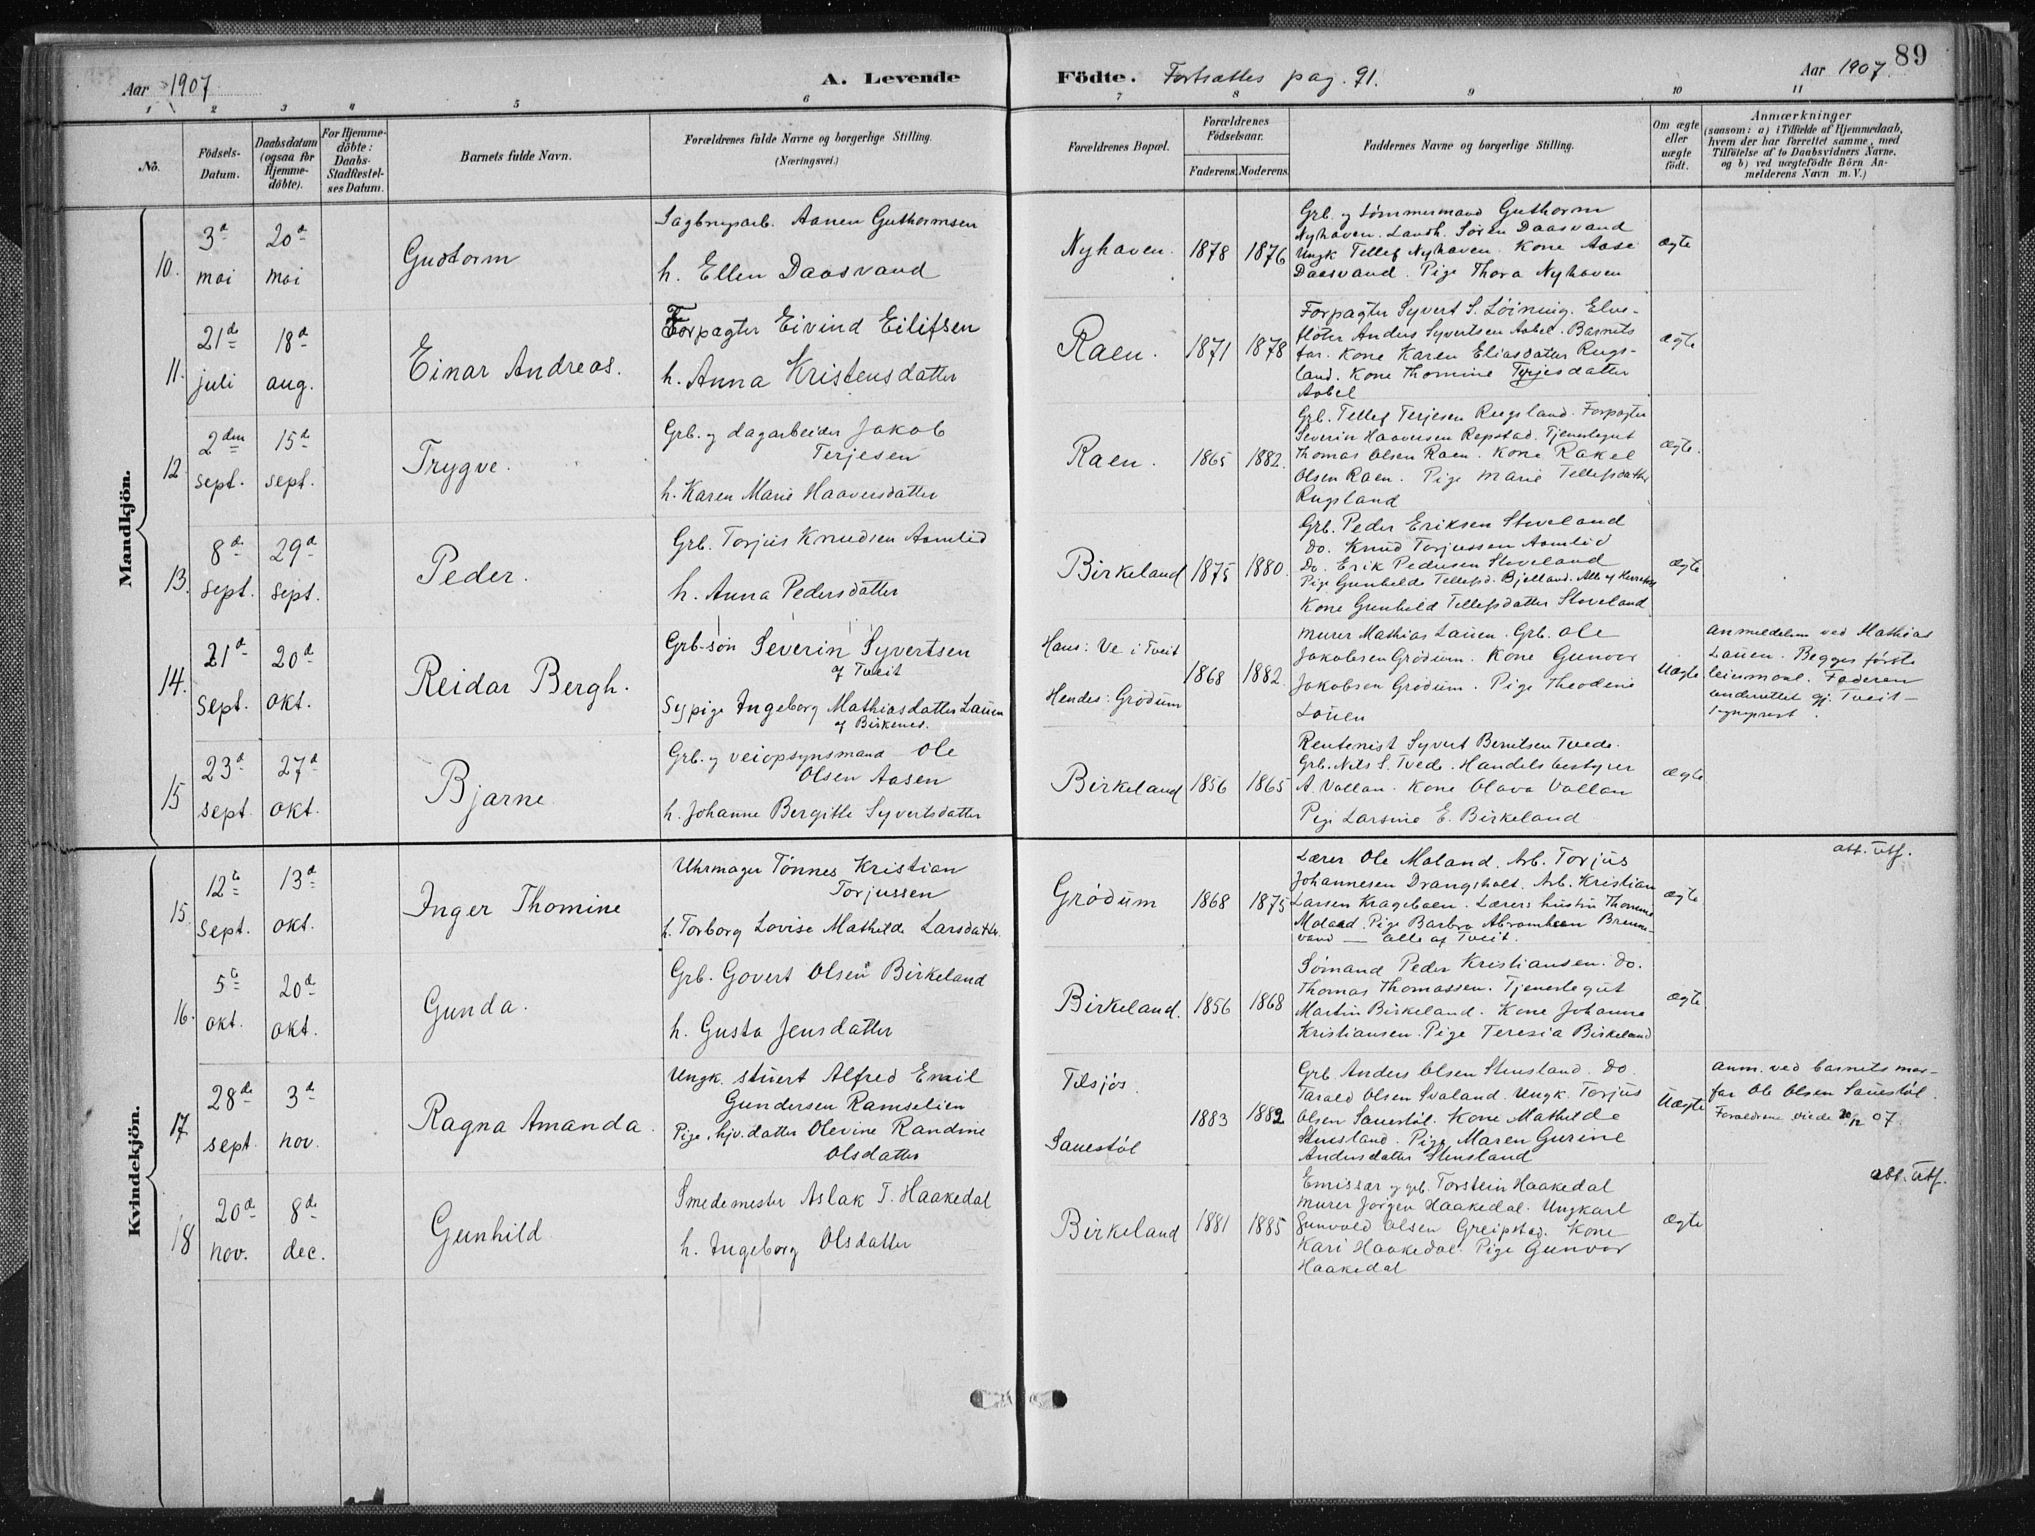 89
Aar 1907
A. Levende
Födte. Fortsættes pag. 91.
Aar 1907.
1 2 3 4 5 6 7 8 9 10 11
No.
Födsels-Datum.
Daabsdatum (ogsaa for Hjemme-döbte).
For Hjemme-döbte: Daabs-Stadfestel-ses Datum.
Barnets fulde Navn.
Forældrenes fulde Navne og borgerlige Stilling.
(Næringsvei.)
Forældrenes Bopæl.
Forældrenes Födselsaar.
Faderens. Moderens.
Faddernes Navne og borgerlige Stilling.
Om ægte eller uægte födt.
Anmærkninger
(saasom: a) i Tilfælde af Hjemmedaab,
hvem der har forrettet samme, med
Tilföielse af to Daabsvidners Navne,
og b) ved uægtefödte Börn An-
melderens Navn m. V.)
Mandkjön.
10. 3d mai
20d mai
Gudtorm
Sagbrugsarb. Aanen Guthormsen
h. Ellen Daasvand
Nyhaven. 1878 1876
Grb. og Tømmermand Guthorm
Nyhaven. Landh. Søren Daasvand
Ungk Tellef Nyhaven. Kone Aase
Daasvand. Pige Thora Nyhaven
ægte
11. 21de juli
18d aug.
Einar Andreas.
Forpagter Eivind Eilifsen
h. Anna Kristensdatter
Raen. 1871 1878
Forpagter Syvert S. Løining. Elve-
fløter Anders Syvertsen Aabel. Barnets
far. Kone Karen Eliasdatter Rugs-
land. Kone Thomine Terjesdatter
Aabel
ægte
12 2den sept.
15d sept.
Trygve.
Grb. og dagarbeider Jakob
Terjesen
h. Karen Marie Haaversdatter
Raen. 1865 1882.
Grb. Tellef Terjesen Rugsland. Forpagter
Severin Haaversen Repstad. Tjenestegut
Thomas Olsen Raen. Kone Rakel
Olsen Raen. Pige Marie Tellefsdatter
Rugsland
ægte.
13. 8de sept.
29d sept.
Peder.
Grb. Torjus Knudsen Aamlid
h. Anna Pedersdatter
Birkeland 1875 1880.
Grb. Peder Eriksen Stoveland
Do. Knud Torjussen Aamlid
Do. Erik Pedersen Stoveland
Pige Gunhilde Tellefsd. Bjelland. Alle af
Kone Gunhild Tellefsdatter Stoveland
ægte
14. 21d sept.
20d okt.
Reidar Bergh.
Grb-søn Severin Syvertsen
af Tveit
Sypige Ingeborg Mathiasdatter Lauen
af Birkenes.
Hans: Ve i Tveit
Hendes: Grødum
1868 1882.
Murer Mathias Lauen. Grb. Ole
Jakobsen Grødum. Kone Gunvor
Jakobsen Grødum. Pige Theodine
Lauen
Uægte
Anmeldelsen ved Mathias
Lauen. Begges første
leiermaal. Faderen
underrettet gj. Tveit-
sogneprest.
15 23d sept.
27d okt.
Bjarne
Grb. og veiopsynsmand Ole
Olsen Aasen
h. Johanne Bergitte Syvertsdatter
Birkeland 1856 1865
Rentenist Syvert Berntsen Tvede.
Grb. Nils S. Tvede. Handelsbestyrer
A. Vallan. Kone Olava Vallan
Pige Larsine E. Birkeland
ægte
Kvindekjön.
15. 12te sept.
13d okt.
Inger Thomine
Uhrmager Tønnes Kristian
Torjussen
h. Torborg Lovise Mathilde Larsdatter.
Grødum 1868 1875
Lærer Ole Moland. Arb. Torjus
Johannesen Drangsholt. Arb. Kristian
Larsen Kragebøen. Lærers hustru Thomine
Moland. Pige Barbra Abrahamsen
— alle af Tveit.
ægte
att. utf.
16. 5te okt.
20d okt.
Gunda.
Grb. Govert Olsen Birkeland
h. Gusta Jensdatter
Birkeland. 1856 1868
Sømand Peder Kristiansen. Do.
Thomas Thomassen. Tjenestegut
Martin Birkeland. Kone Johanne
Kristiansen. Pige Teresia Birkeland
ægte
17 28de sept.
3d nov.
Ragna Amanda.
Ungk. stuert Alfred Emil
Gundersen Ramselien
Pige, hjv. datter Olevine Randine
Olsdatter
Tilsjøs.
Sauestøl
1883 1882
Grb. Anders Olsen Stensland. Do.
Tarald Olsen Svaland. Ungk. Torjus
Olsen Sauestøl. Kone Mathilde
Stensland. Pige Maren Gurine
Andersdatter Stensland
Uægte
Anm. ved barnets mor-
far Ole Olsen Sauestøl.
Forældrene viede 20/12 07.
18 20de nov.
8de dec.
Gunhild
Smedemester Aslak T. Haakedal
h. Ingeborg Olsdatter
Birkeland 1881 1885
Emissær og grb. Torstein Haakedal
Murer Jørgen Haakedal. Ungkarl
Gunvald Olsen Greipstad. Kone
Kari Haakedal. Pige Gunvor
Haakedal
ægte
att. utf.